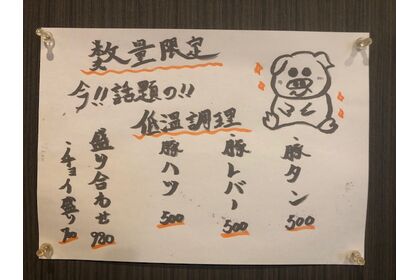 数量限定
今!!話題の!!
低温調理
・豚タン 500
・豚レバー 500
・豚ハツ 500
盛り合わせ 980
・チョイ盛り 700